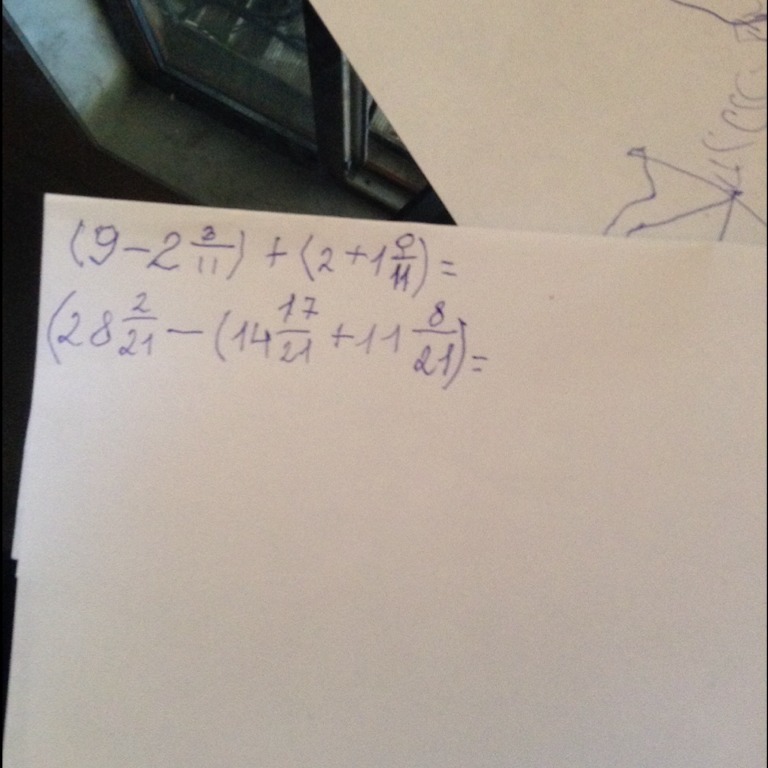 (9 - 2 3/11) + (2 + 1 9/11) =
(28 2/21 - (14 17/21 + 11 8/21) =